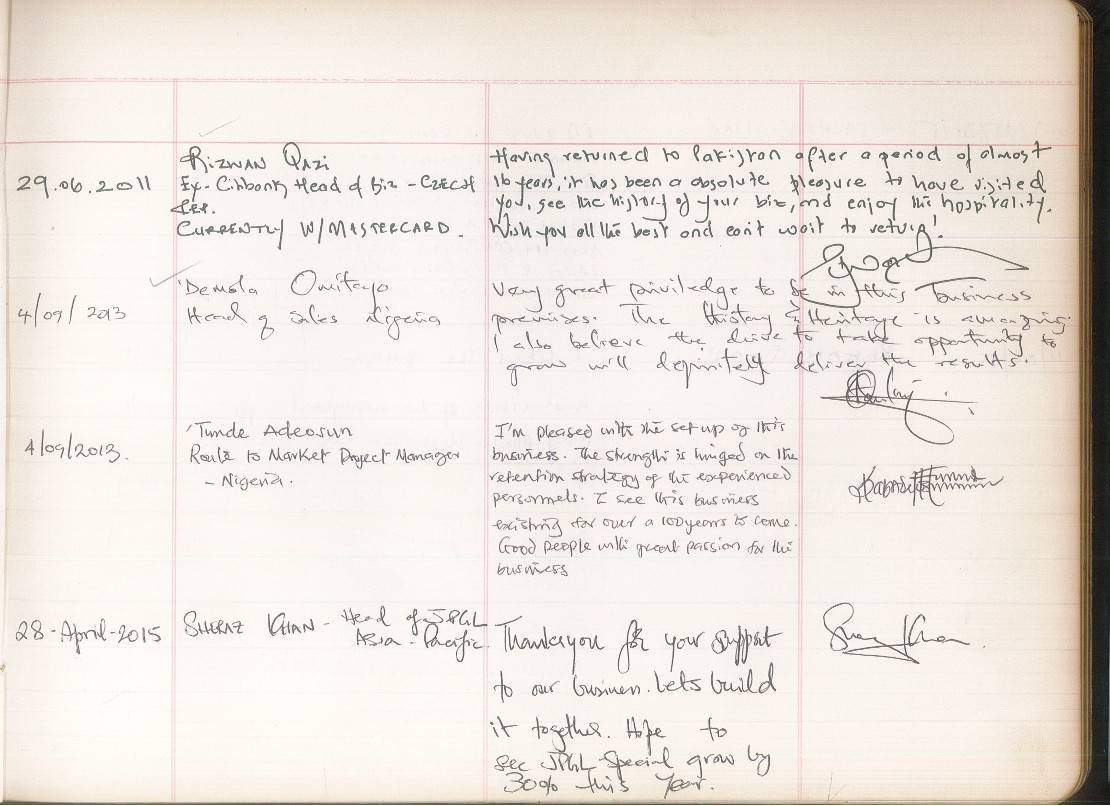 29.06.2011
RIZWAN QAZI
Ex-Citibank Head of Biz - CZECH
REP.
CURRENTLY W/MASTERCARD.
Having returned to Pakistan after a period of almost
16 years, it has been a absolute pleasure to have visited
you, see the history of your biz, and enjoy the hospitality.
Wish you all the best and can't wait to return!
4/09/2013
'Demola Omitayo
Head of Sales Nigeria
Very great priviledge to be in this business
premises. The History & Heritage is amazing.
I also believe the drive to take opportunity to
grow will definitely deliver the results.
4/09/2013.
'Tunde Adeosun
Route to Market Project Manager
- Nigeria.
I'm pleased with the set up of this
business. The strength is hinged on the
retention strategy of the experienced
personnels. I see this business
existing for over a 100 years to come.
Good people with great passion for the
business
28-April-2015
SHERAZ KHAN - Head of JP&L
Asia-Pacific.
Thankyou for your support
to our business. Lets build
it together. Hope to
see JP&L Special grow by
30% this year.